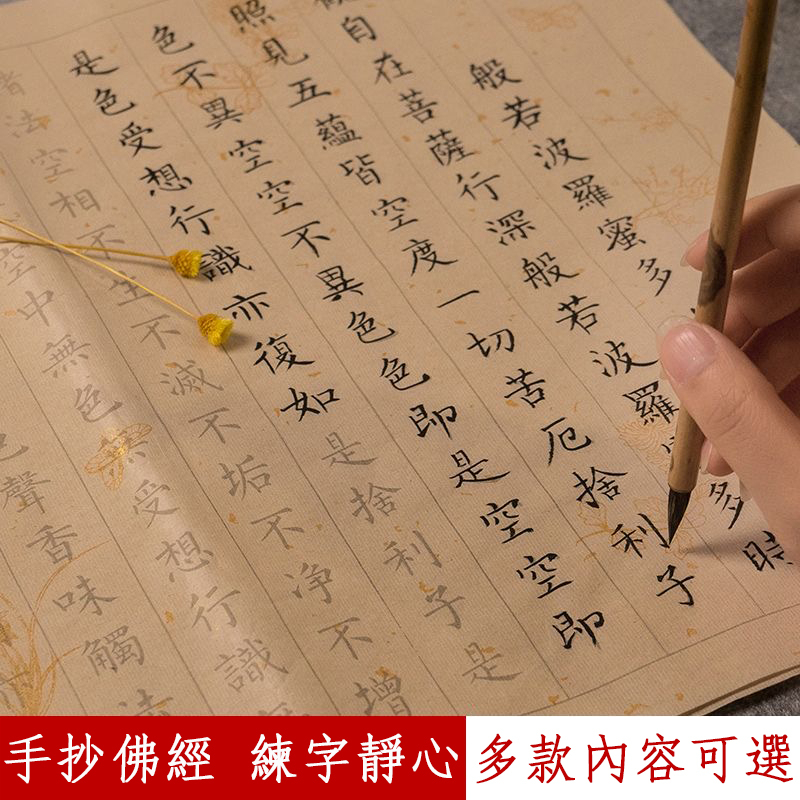 般若波羅蜜多
自在菩薩行深般若波羅多時
照見五蘊皆空度一切苦厄捨利子
色不異空空不異色色即是空空即
是色受想行識亦復如是捨利子是
法空相不生不滅不垢不淨不增
空中無色無受想行識
聲香味觸法
手抄佛經 練字靜心 多款內容可選